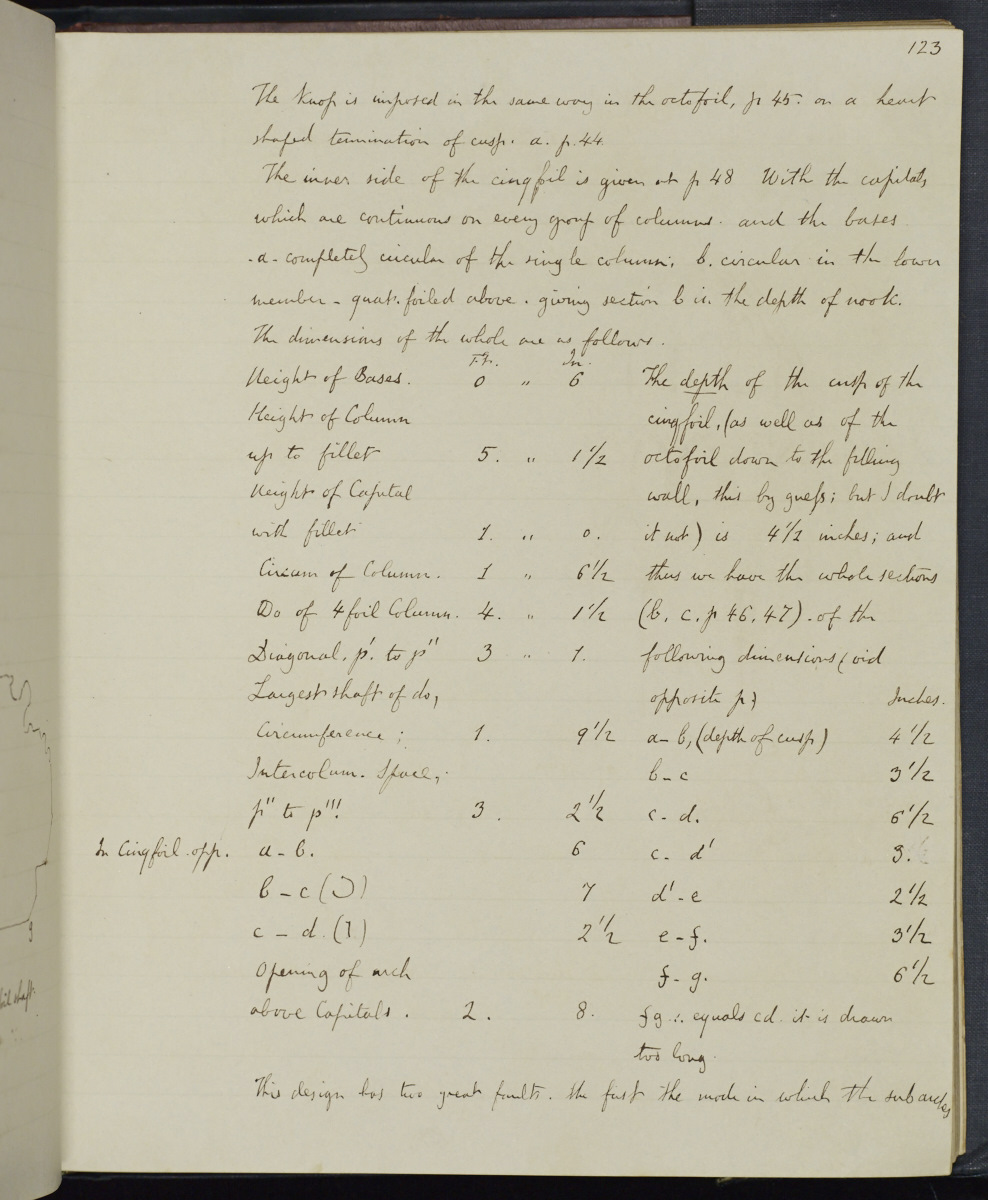 123
The Knop is imposed in the same way in the octofoil, p 45. on a heart
shafed termination of cusp. a. p. 44.
The inner side of the cinqfoil is given at p 48 With the capitals,
which are continuous on every group of columns. and the bases.
-a- completely circular of the single column; b. circular in the lower
member - quat. foiled above. giving section b in the depth of nook.
The dimensions of the whole are as follows.
Ft. In.
Height of Bases. 0 " 6
Height of Column
up to fillet 5. " 1 1/2
Height of Capital
with fillet 1. " 0.
Circum of Column. 1 " 6 1/2
Do of 4 foil Column. 4. " 1 1/2
Diagonal. p'. to p'' 3 " 1.
Largest shaft of do,
Circumference; 1. 9 1/2
Intercolum. Space,
p'' to p'''. 3. 2 1/2
In Cinqfoil. opp. a - b. 6
b - c 7
c - d. 2 1/2
Opening of arch
above Capitals. 2. 8.
The depth of the cusp of the
cinqfoil, (as well as of the
octofoil down to the filling
wall, this by guess; but I doubt
it not) is 4 1/2 inches; and
thus we have the whole sections
(b. c. p 46. 47). of the
following dimensions (vid
opposite p) Inches.
a - b, (depth of cusp) 4 1/2
b - c 3 1/2
c - d. 6 1/2
c - d' 3.
d' - e 2 1/2
e - f. 3 1/2
f - g. 6 1/2
fg ∴ equals cd. it is drawn
too long.
This design has two great faults. the first the mode in which the subarches
g
shaft.